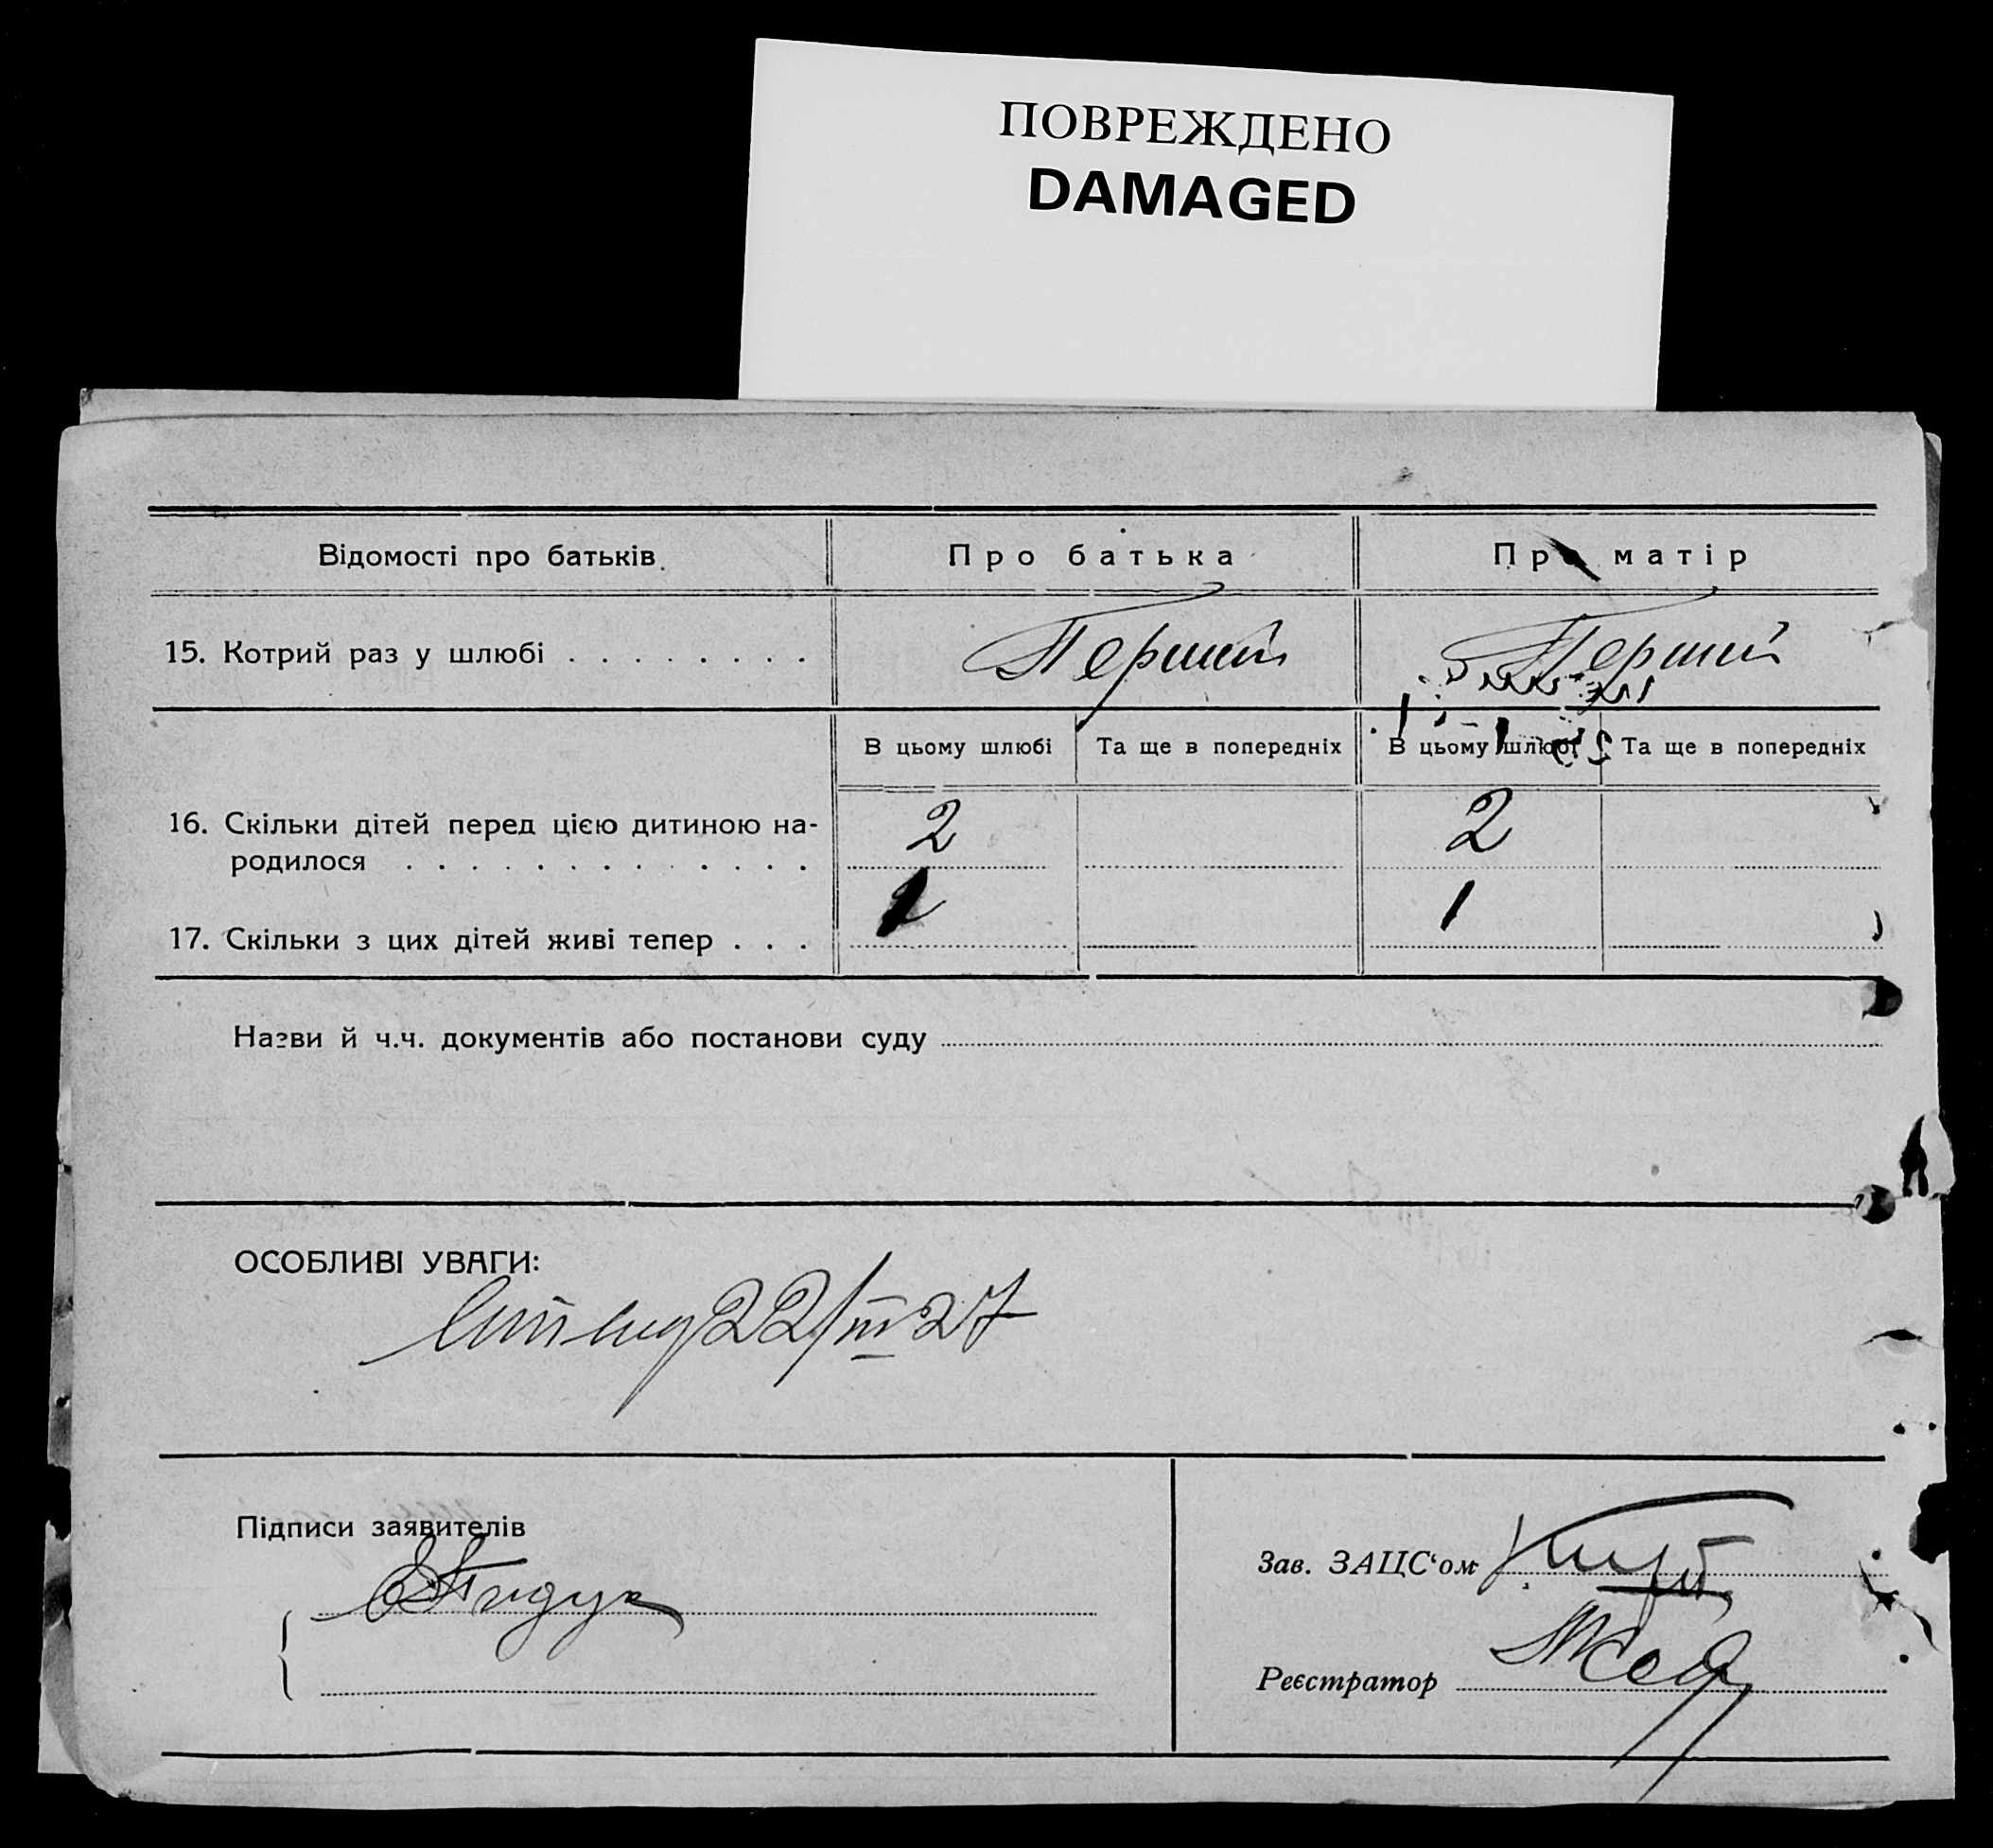 ПОВРЕЖДЕНО
DAMAGED
Відомості про батьків.
Про батька
Про матір
15. Котрий раз у шлюбі . . . . . . . .
Перший
Перший
В цьому шлюбі
Та ще в попередніх
В цьому шлюбі
Та ще в попередніх
16. Скільки дітей перед цією дитиною на-
родилося . . . . . . . . . . . . .
2
2
17. Скільки з цих дітей живі тепер . . .
1
1
Назви й ч.ч. документів або постанови суду
ОСОБЛИВІ УВАГИ:
22/III 27
Підписи заявителів
Зав. ЗАЦС‘ом
Реєстратор